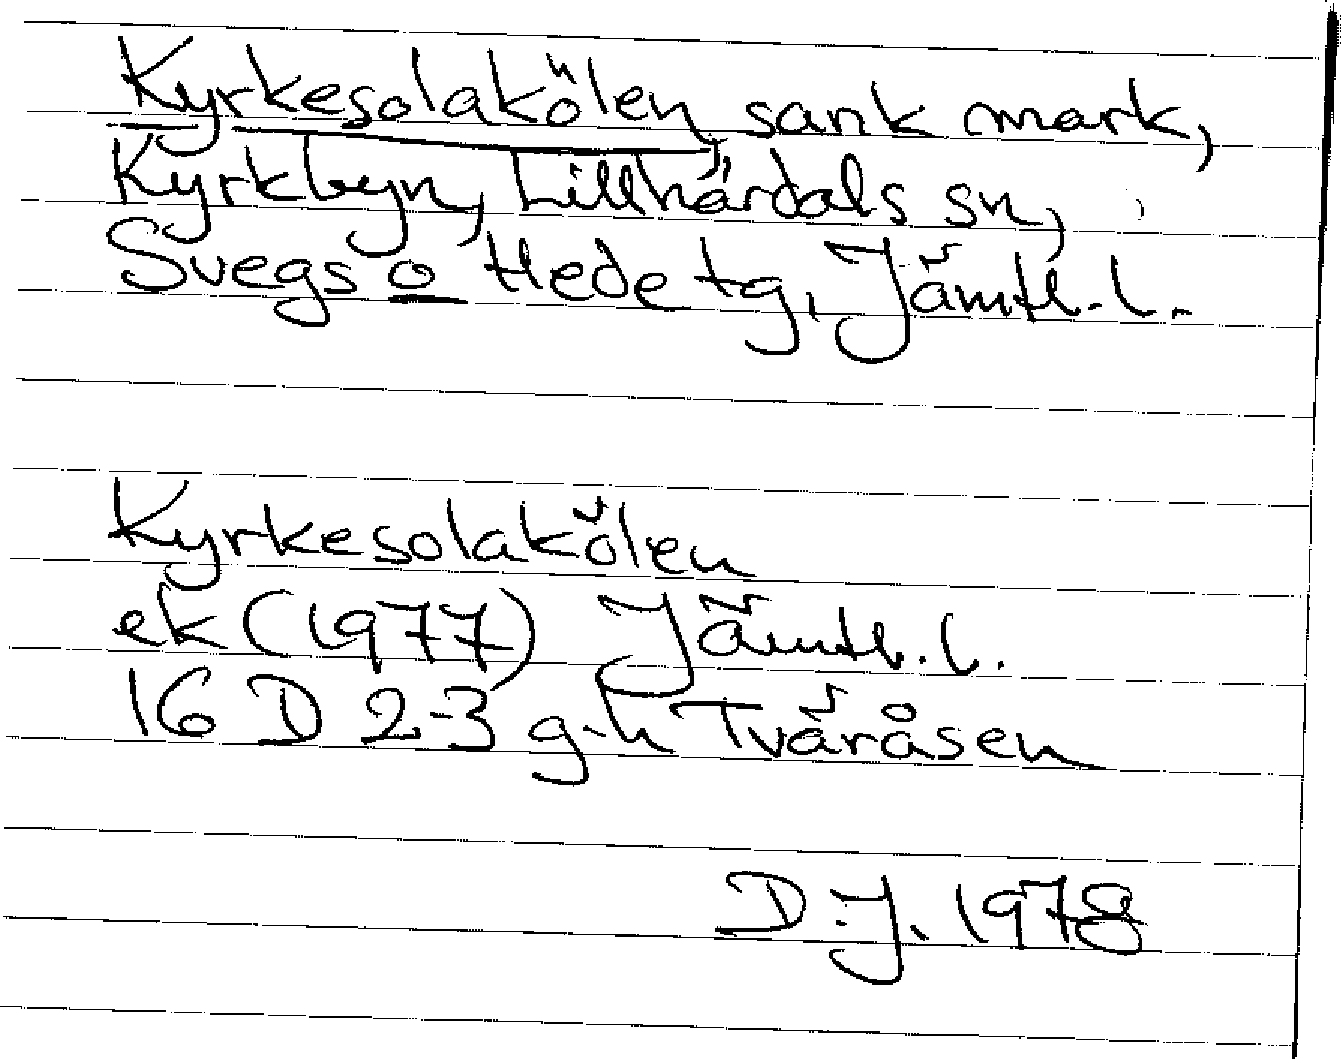 Kyrkesolakölen, sank mark,
Kyrkbyn, Lillhärdals sn,
Svegs o Hede tg, Jämtl. l.
Kyrkesolakölen
ek (1977) Jämtl. l.
16 D 2-3 g-h Tväråsen
D.J. 1978